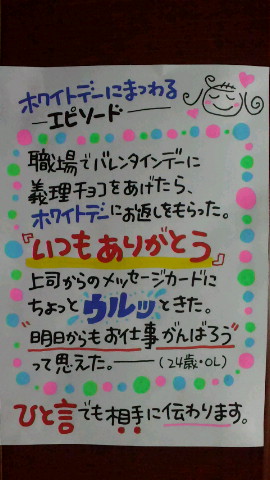 ホワイトデーにまつわる
―エピソード―
職場でバレンタインデーに
義理チョコをあげたら、
ホワイトデーにお返しをもらった。
『いつもありがとう』
上司からのメッセージカードに
ちょっとウルッときた。
"明日からもお仕事がんばろう"
って思えた。―(24歳・OL)
ひと言でも相手に伝わります。